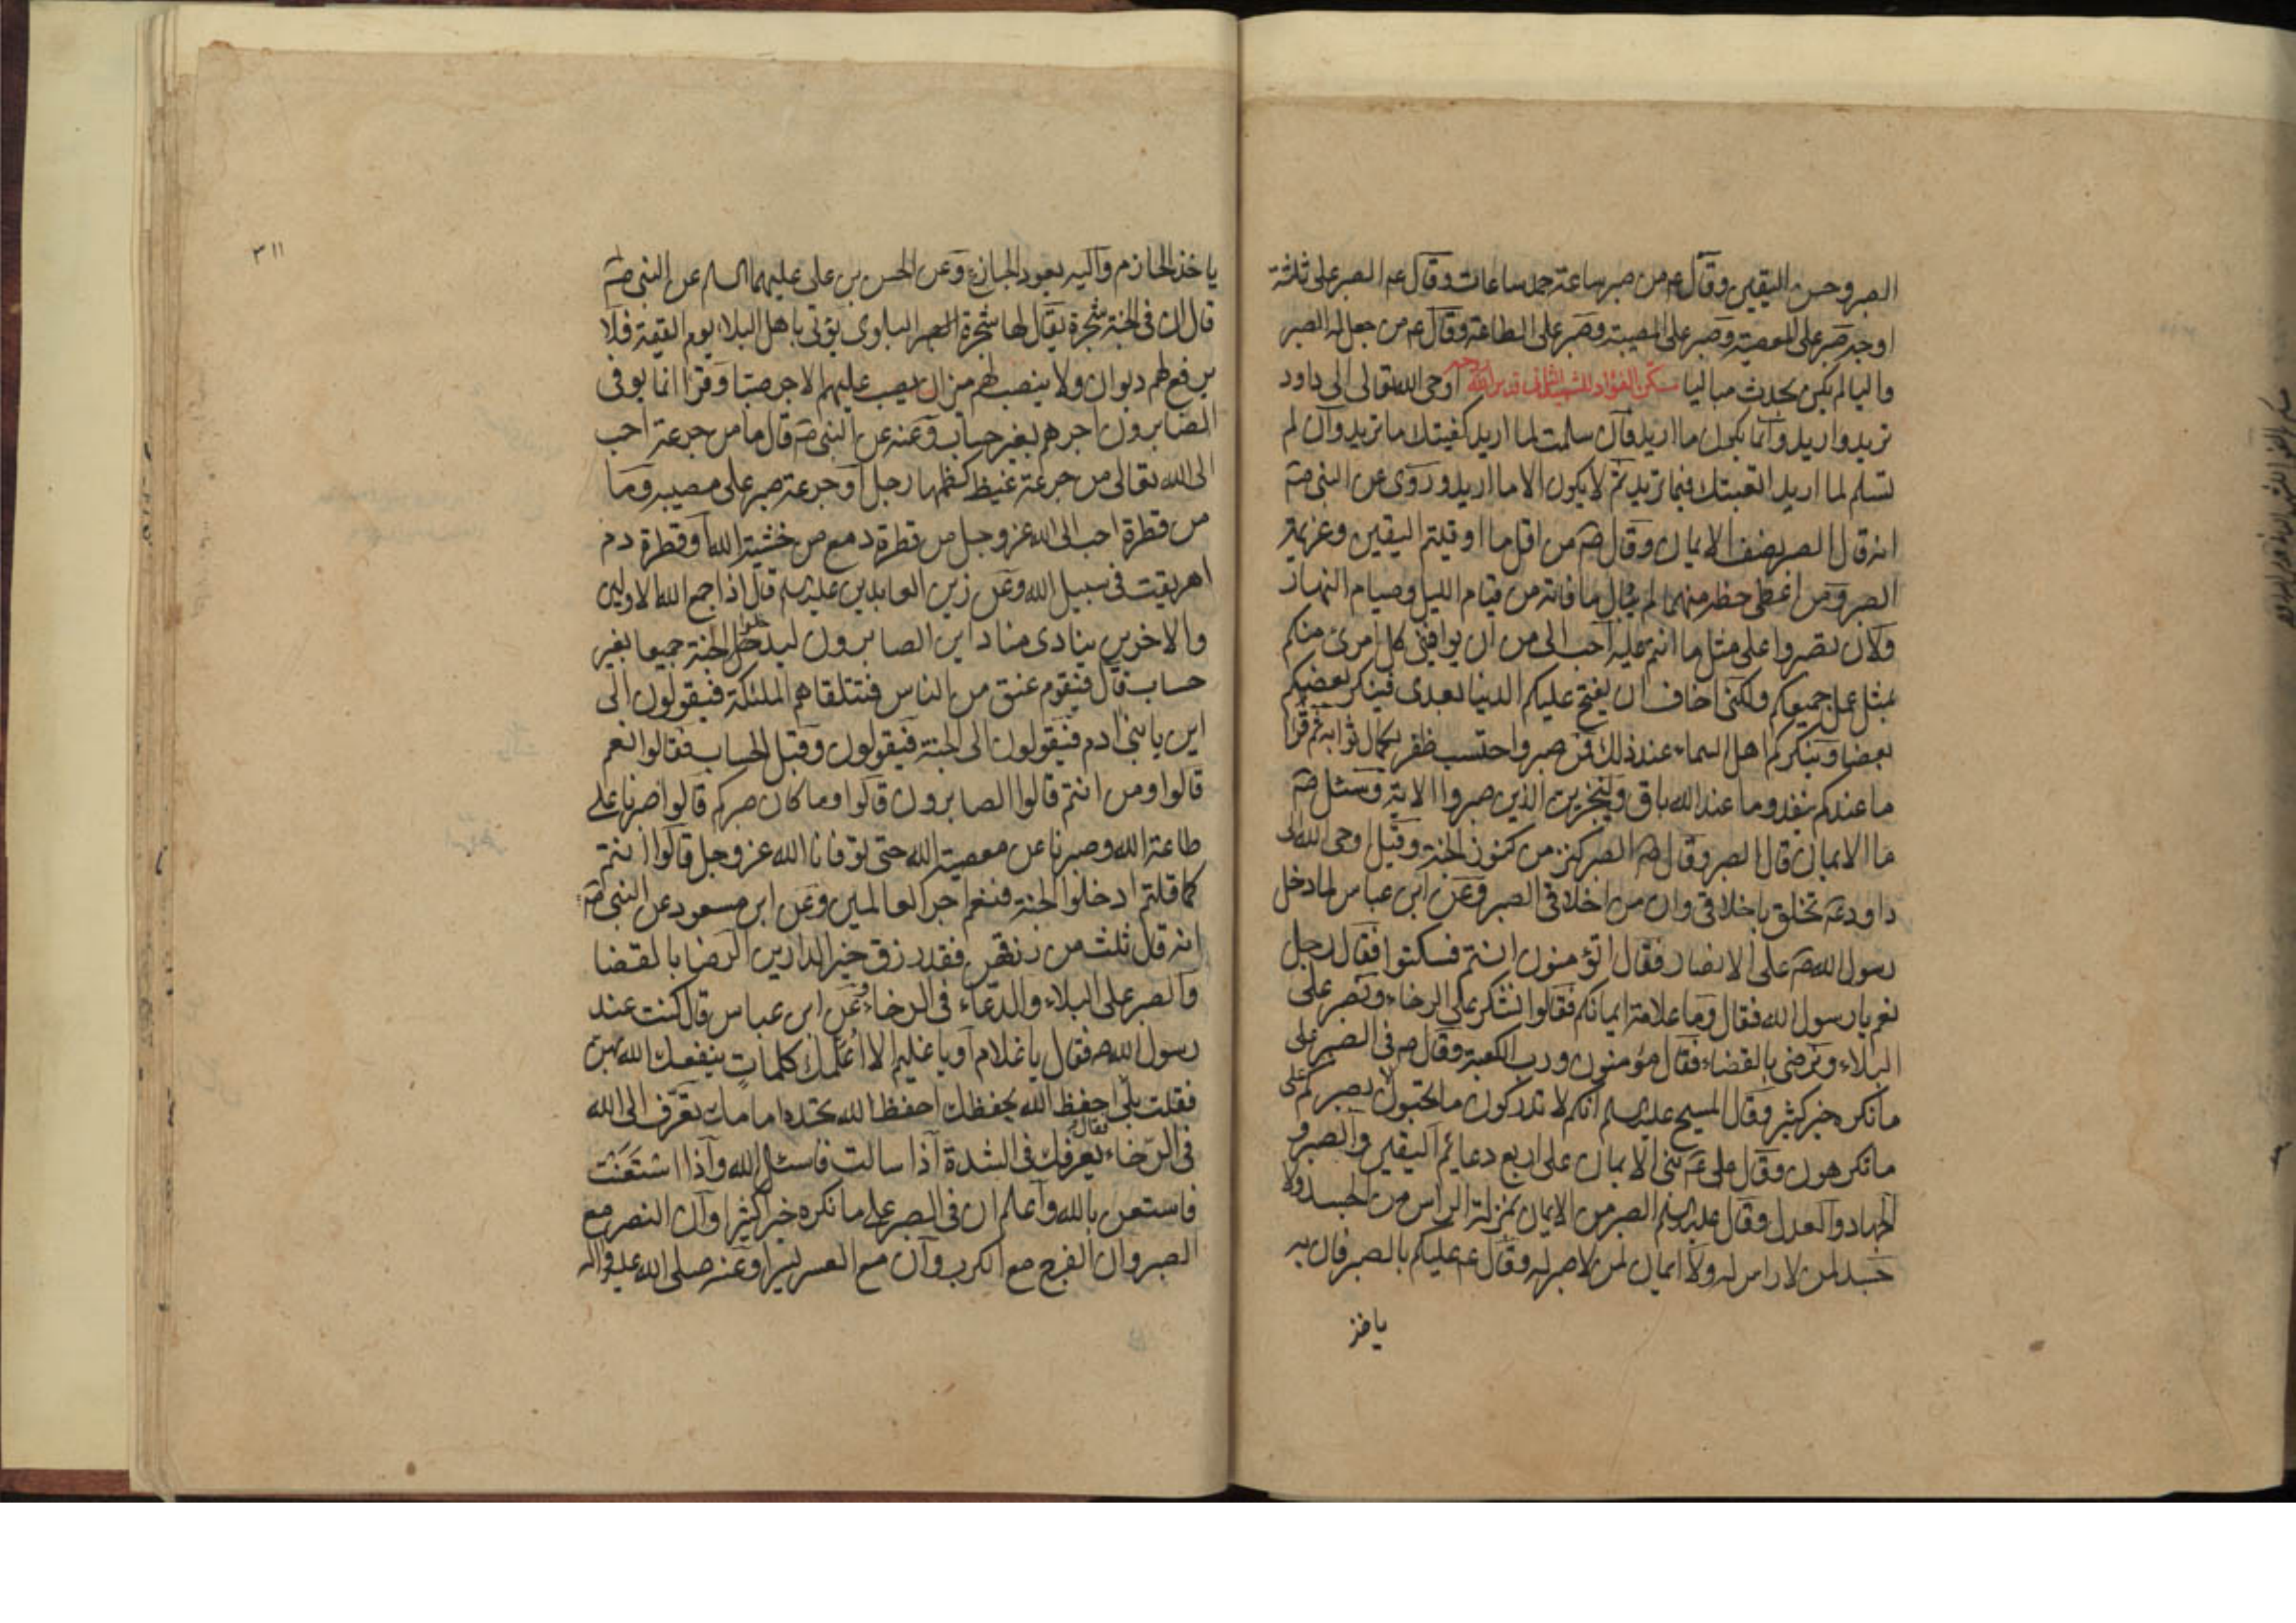 الصبر وحسن اليقين وقال ع من صبر ساعة حمد ساعات وقال ع الصبر على ثلثة
اوجه صبر على المعصية وصبر على المصيبة وصبر على الطاعة وقال ع من جعل له الصبر
واليا لم يكن بحدث مباليا مسكن الفؤاد للشهيد الثاني قدس الله روحه اوحى الله تعالى الى داود
تريد واريد وانما يكون ما اريد فان سلمت لما اريد كفيتك ما تريد وان لم
تسلم لما اريد اتعبتك فيما تريد ثم لا يكون الا ما اريد وروى عن النبي ص
انه قال الصبر نصف الايمان وقال ص من اقل ما اوتيتم اليقين وعزيمة
الصبر ومن اعطى حظه منهما لم يبال ما فاته من قيام الليل وصيام النهار
ولان تصبروا على مثل ما انتم عليه احب الى من ان يوافيني كل امرئ منكم
بمثل عمل جميعكم ولكني اخاف ان يفتح عليكم الدنيا بعدى فينكر بعضكم
بعضا وينكركم اهل السماء عند ذلك فمن صبر واحتسب ظفر بكمال ثوابه ثم قرا
ما عندكم ينفد وما عند الله باق ولنجزين الذين صبروا الاية وسئل ص
ما الايمان قال الصبر وقال ص الصبر كنز من كنوز الجنة وقيل اوحى الله الى
داود ع تخلق باخلاقى وان من اخلاقى الصبر وعن ابن عباس لما دخل
رسول الله ص على الانصار فقال اتؤمنون انتم فسكتوا فقال رجل
نعم يا رسول الله فقال وما علامة ايمانكم فقالوا نشكر على الرخاء ونصبر على
البلاء ونرضى بالقضاء فقال مؤمنون ورب الكعبة وقال ص في الصبر على
ما نكره خير كثير وقال المسيح عليه السلم انكم لا تدركون ما تحبون الا بصبركم على
ما تكرهون وقال على ع بنى الايمان على اربع دعائم اليقين والصبر و
الجهاد والعدل وقال عليه السلم الصبر من الايمان بمنزلة الراس من الجسد ولا
جسد لمن لا راس له ولا ايمان لمن لا صبر له وقال ع عليكم بالصبر فان به
ياخذ
٣١١
ياخذ الحازم واليه يعود الجازع وعن الحسن بن على عليهما السلم عن النبى ص
قال ان فى الجنة شجرة يقال لها شجرة البلوى يؤتى باهل البلاء يوم القيمة فلا
يرفع لهم ديوان ولا ينصب لهم ميزان يصب عليهم الاجر صبا وقرا انما يوفى
الصابرون اجرهم بغير حساب وعنه عن النبى ص قال ما من جرعة احب
الى الله تعالى من جرعة غيظ كظمها رجل او جرعة صبر على مصيبة وما
من قطرة احب الى الله عز وجل من قطرة دمع من خشية الله او قطرة دم
اهريقت فى سبيل الله وعن زين العابدين عليه السلم قال اذا جمع الله الاولين
والاخرين ينادى مناد اين الصابرون ليدخلوا الجنة جميعا بغير
حساب قال فيقوم عنق من الناس فتتلقاهم الملئكة فيقولون الى
اين يا بنى ادم فيقولون الى الجنة فيقولون وقبل الحساب فقالوا نعم
قالوا ومن انتم قالوا الصابرون قالوا وما كان صبركم قالوا صبرنا على
طاعة الله وصبرنا عن معصية الله حتى توفانا الله عز وجل قالوا انتم
كما قلتم ادخلوا الجنة فنعم اجر العالمين وعن ابن مسعود عن النبى ص
انه قال ثلث من رزقهن فقد رزق خير الدارين الرضا بالقضا
والصبر على البلاء والدعاء فى الرخاء وعن ابن عباس قال كنت عند
رسول الله ص فقال يا غلام او يا غليم الا اعلمك كلمات ينفعك الله بهن
فقلت بلى فقال احفظ الله يحفظك احفظ الله تجده امامك تعرف الى الله
فى الرخاء يعرفك فى الشدة اذا سالت فاسئل الله واذا استعنت
فاستعن بالله واعلم ان فى الصبر على ما نكره خيرا كثيرا وان النصر مع
الصبر وان الفرج مع الكرب وان مع العسر يسرا وعنه صلى الله عليه واله